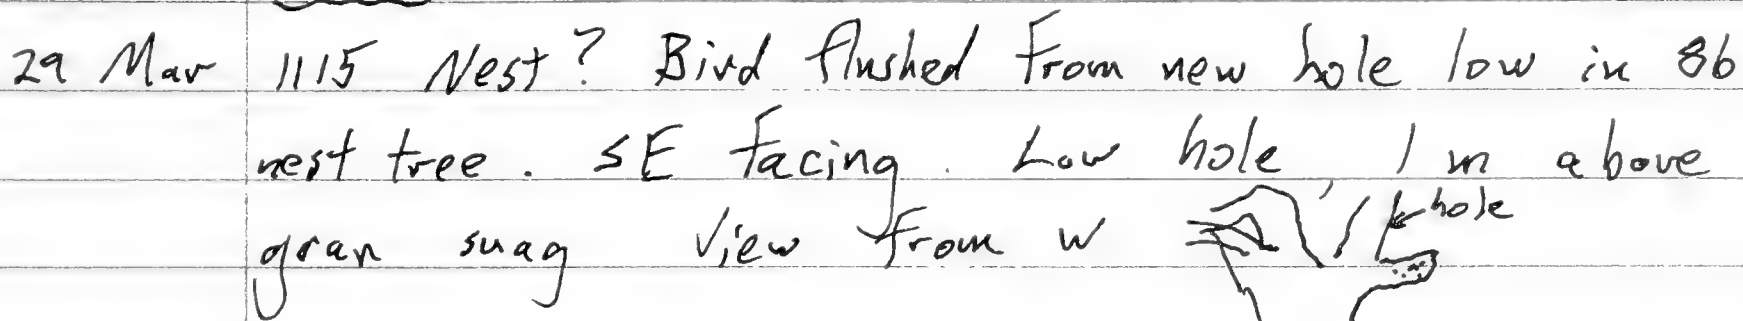 29 Mar 1115 Nest? Bird flushed from new hole low in 86
nest tree. SE facing. Low hole, 1 m above
gran snag View from W hole